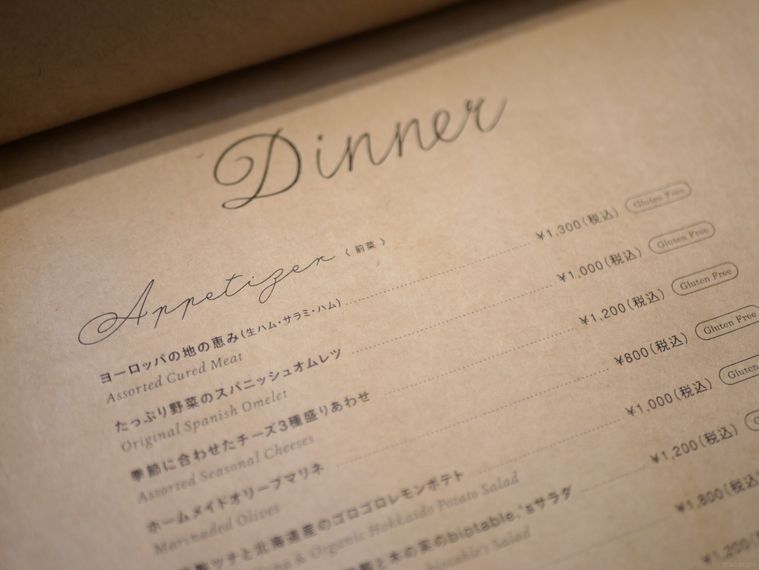 Dinner
Appetizer 〈 前菜 〉
ヨーロッパの地の恵み(生ハム・サラミ・ハム) ¥1,300(税込) Gluten Free
Assorted Cured Meat
たっぷり野菜のスパニッシュオムレツ ¥1,000(税込) Gluten Free
Original Spanish Omelet
季節に合わせたチーズ3種盛りあわせ ¥1,200(税込) Gluten Free
Assorted Seasonal Cheeses
ホームメイドオリーブマリネ ¥800(税込) Gluten Free
Marinaded Olives
ツナと北海道産のゴロゴロレモンポテト ¥1,000(税込) Gluten
& Organic Hokkaido Potato Salad
と木の実のbiotable.'sサラダ ¥1,200(税込)
biotable's Salad
¥1,800(税込)
¥1,200